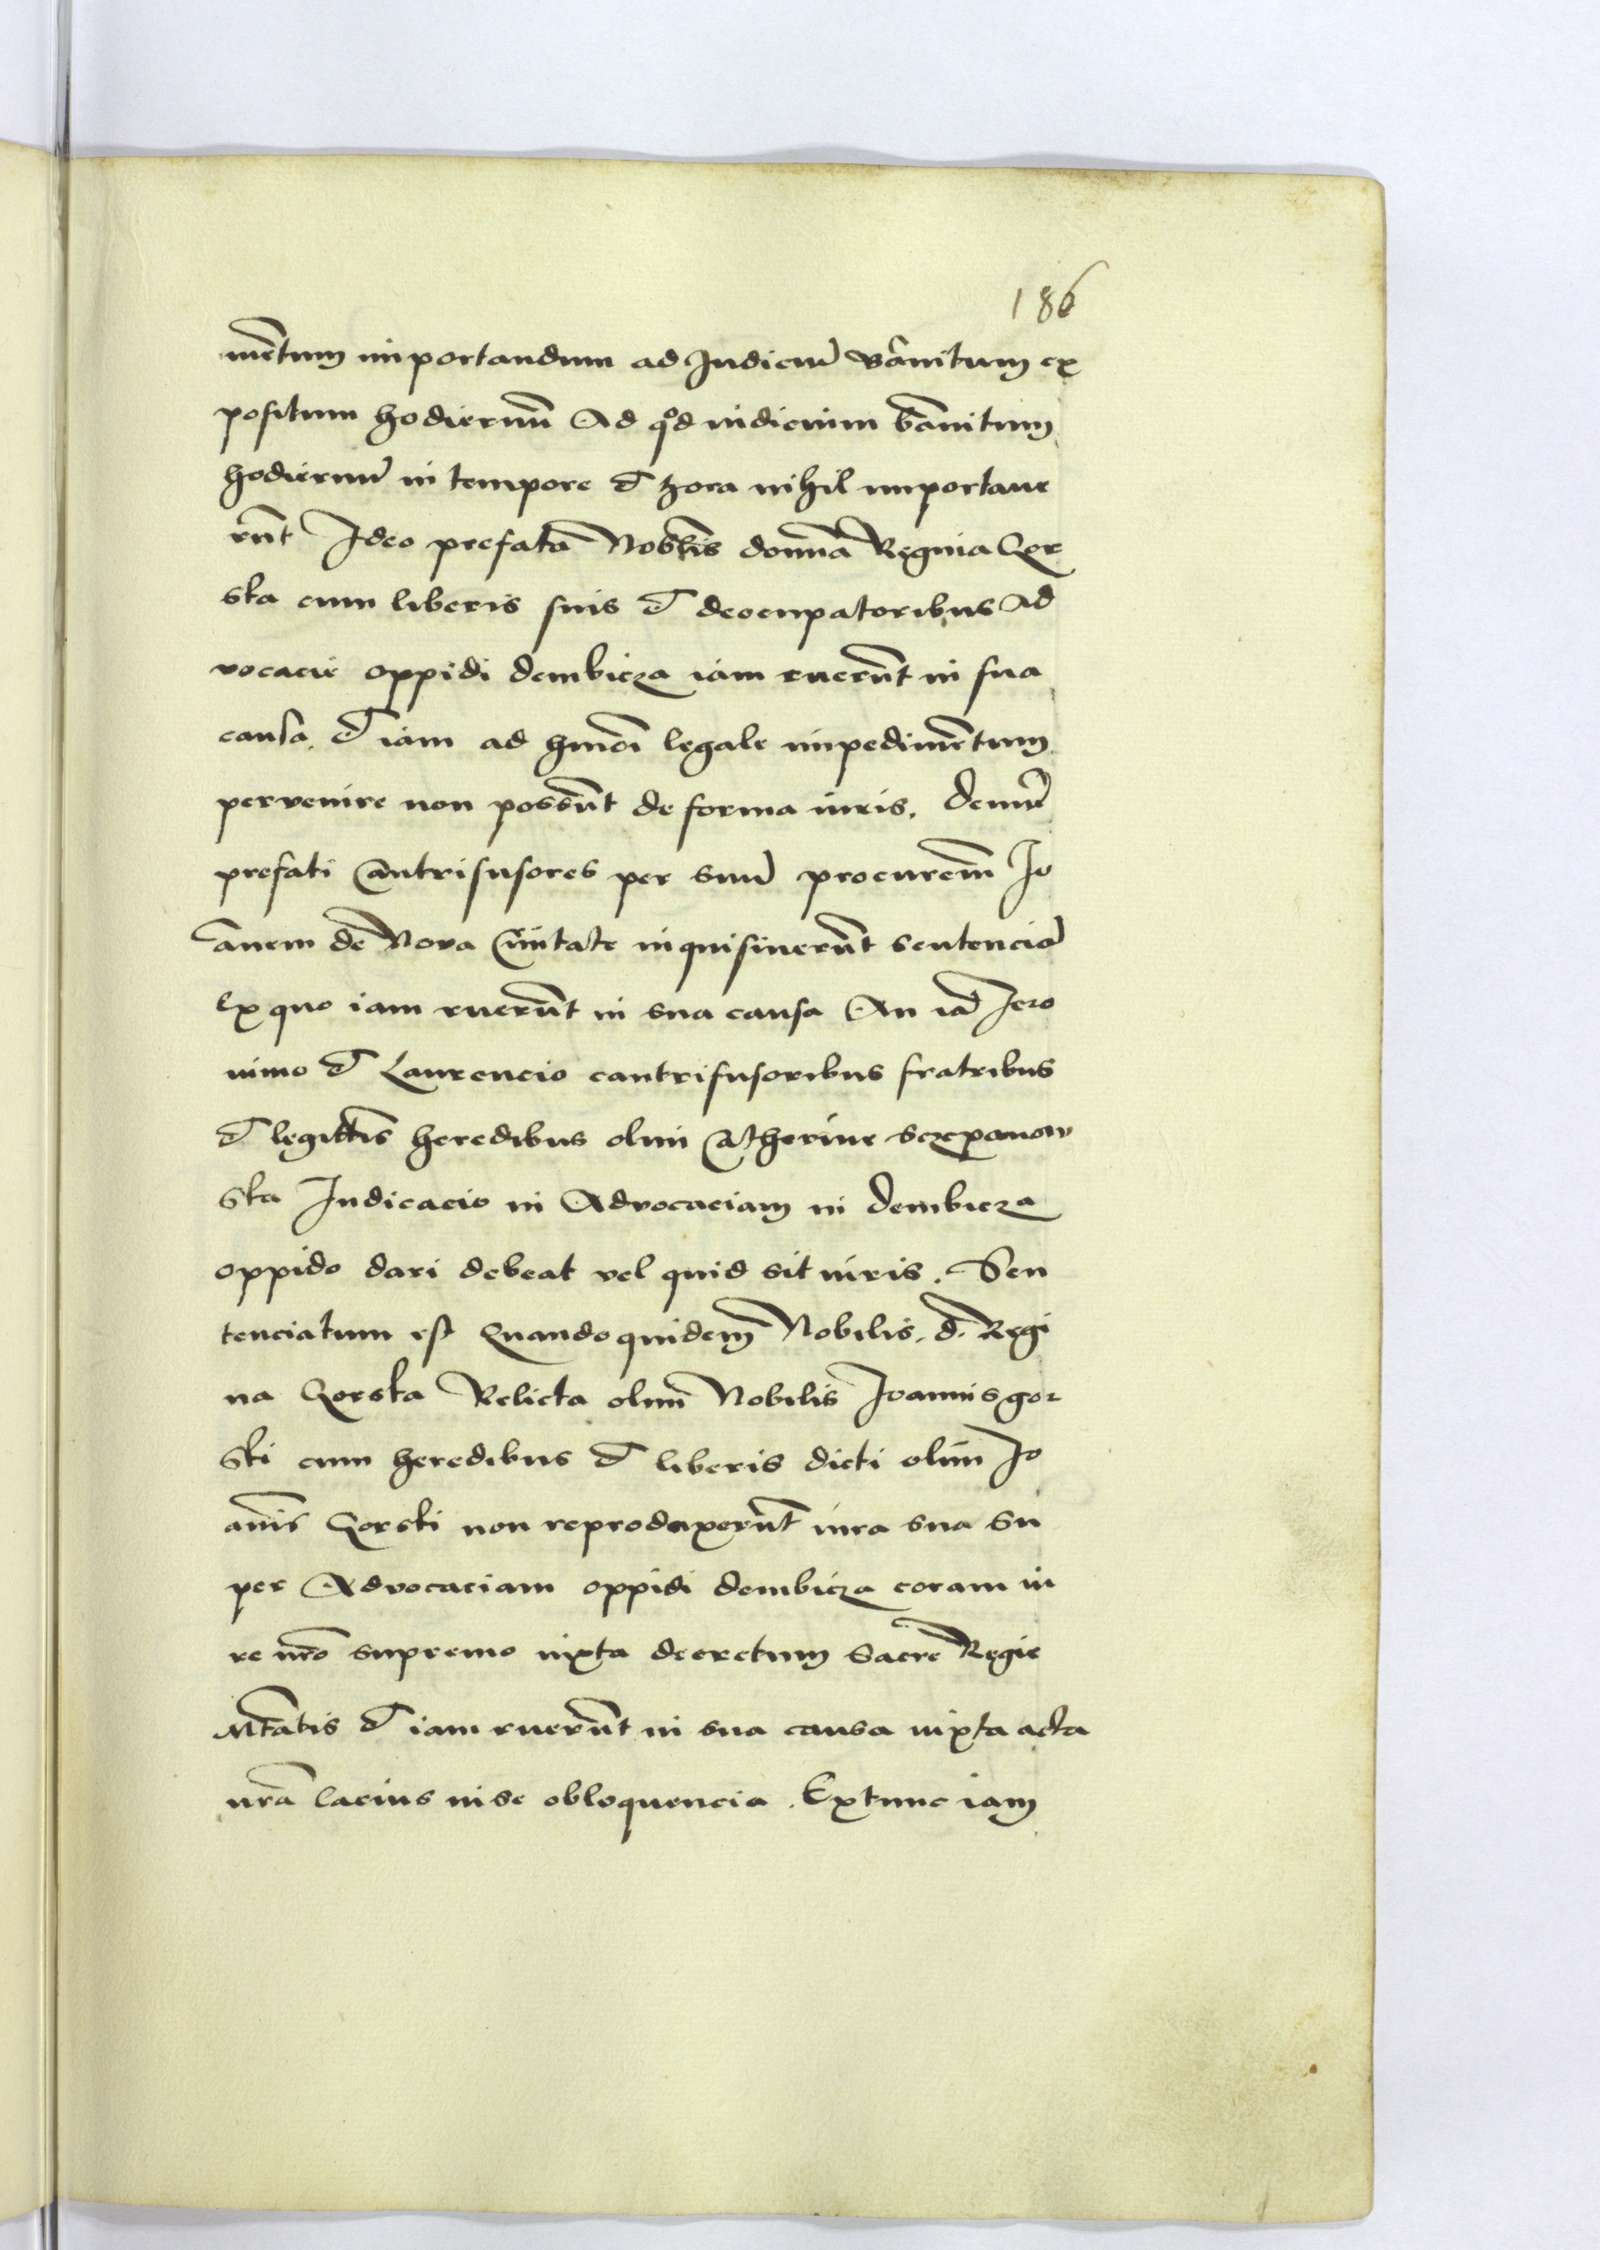 186
mētum importandum ad Judiciū bānitum ex
positum hodiernū Ad qd iudicium bānitum
hodiernū in tempore et hora nihil importaue
rūt Ideo prefata Nobilis domīa Regina Gor
ska cum liberis suis et deocupatoribus Ad
vocacie oppidi dembicza iam ruerūt in sua
causa. et iam ad hmōi legale impedimētum
pervenire non possūt de forma iuris. demū
prefati Cantrifusores per suū procurem̄ Jo
ānem de Nova Civitate inquisiuerūt sentenciā
Ex quo iam ruerūt in sua causa An iā Jero
nimo et Laurencio cantrifusoribus fratribus
et legittīs heredibus olim Catherine sczepanow
ska Judicacio in Advocaciam in dembicza
oppido dari debeat vel quid sit iuris. Sen
tenciatum est Quandoquidem Nobilis. d. Regi
na Gorska Relicta olim Nobilis Joannis gor
ski cum heredibus et liberis dicti olim Jo
anīs Gorski non reproduxerūt iura sua su
per Advocaciam oppidi dembicza coram iu
re nr̄o supremo iuxta decretum Sacre Regie
Mtātis et iam ruerūt in sua causa iuxta acta
nr̄a lacius in se obloquencia. Extunc iam